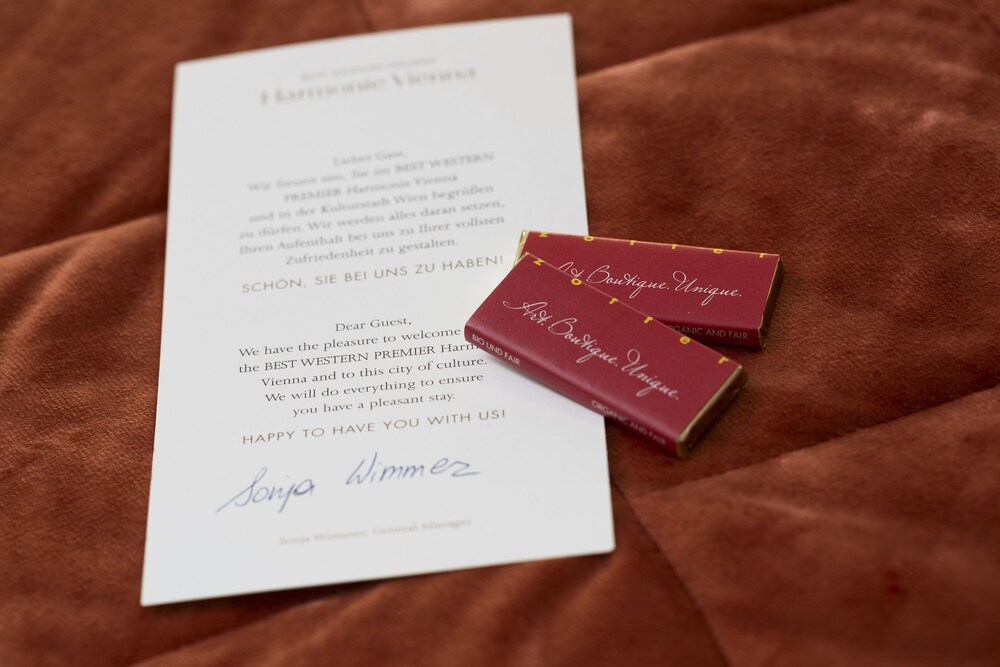 BEST WESTERN PREMIER
Harmonie Vienna
Lieber Gast,
Wir freuen uns, Sie im BEST WESTERN
PREMIER Harmonie Vienna
und in der Kulturstadt Wien begrüßen
zu dürfen. Wir werden alles daran setzen,
Ihren Aufenthalt bei uns zu Ihrer vollsten
Zufriedenheit zu gestalten.
SCHÖN, SIE BEI UNS ZU HABEN!
Dear Guest,
We have the pleasure to welcome
the BEST WESTERN PREMIER
Vienna and to this city of culture.
We will do everything to ensure
you have a pleasant stay.
HAPPY TO HAVE YOU WITH US!
Sonja Wimmer
Sonja Wimmer, General Manager
zotter
Art. Boutique. Unique.
ORGANIC AND FAIR
zotter
Art. Boutique. Unique.
BIO UND FAIR
ORGANIC AND FAIR